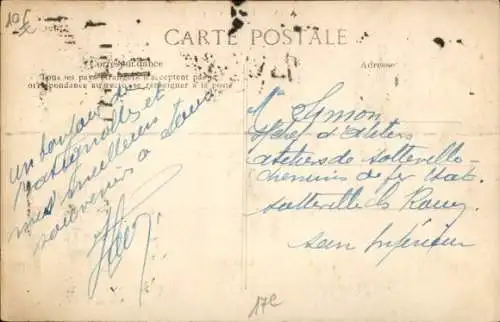 10f
CARTE POSTALE
Correspondance
Tous les pays étrangers n'acceptent pas la
correspondance au recto. se renseigner à la poste
Adresse
un bonjour de
Batignolles et
mes meilleurs
souvenirs à tous
Mr Symon
Chef d'Ateliers
ateliers de Sotteville
chemins de fer Etat
Sotteville les Rouen
Seine Inférieure
17e